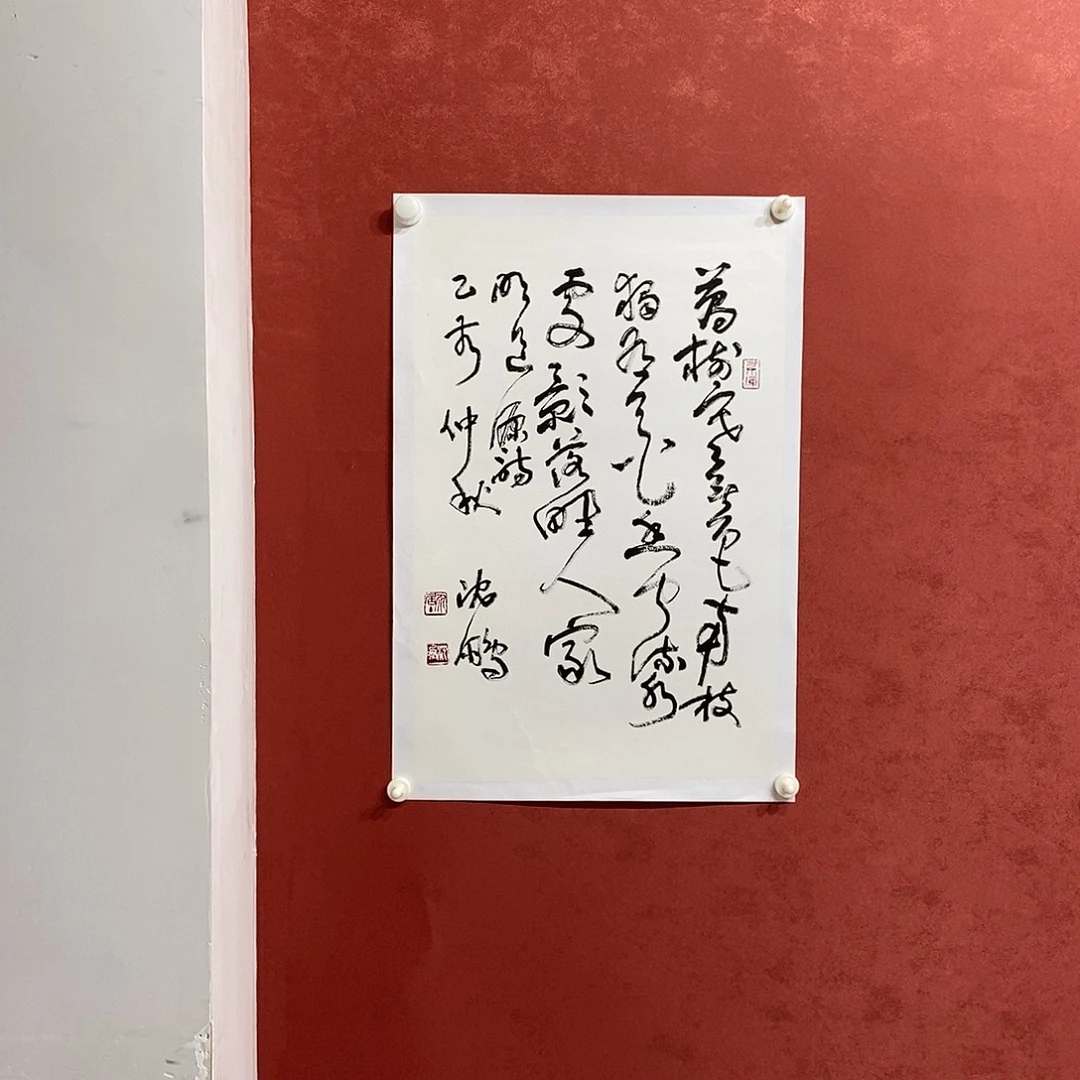 萬樹寒無色南枝
獨有花香聞流水
處影落野人家
明道源詩
乙亥仲秋 沈鵬